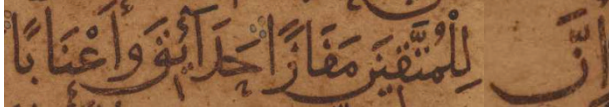 إِنَّ لِلْمُتَّقِينَ مَفَازًا حَدَآئِقَ وَأَعْنَابًا